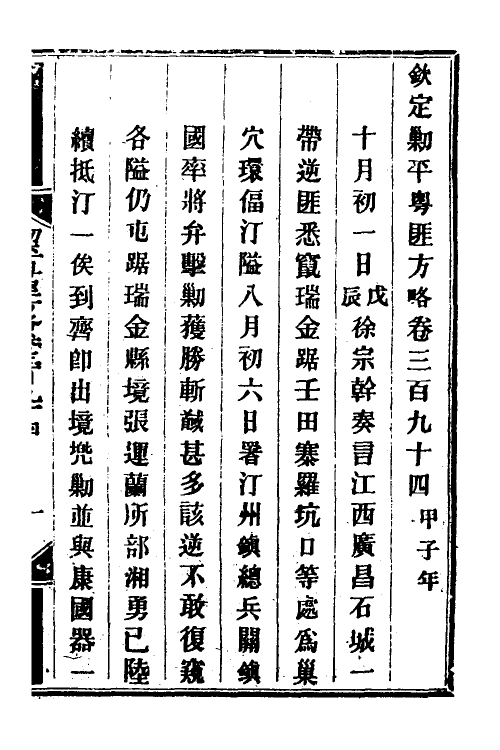 欽定勦平粵匪方略卷三百九十四 甲子年
十月初一日戊辰徐宗幹奏言江西廣昌石城一
帶逆匪悉竄瑞金踞壬田寨羅坑口等處爲巢
穴環偪汀隘八月初六日署汀州鎮總兵關鎮
國率將弁擊勦獲勝斬馘甚多該逆不敢復窺
各隘仍屯踞瑞金縣境張運蘭所部湘勇已陸
續抵汀一俟到齊卽出境兜勦並與康國器一